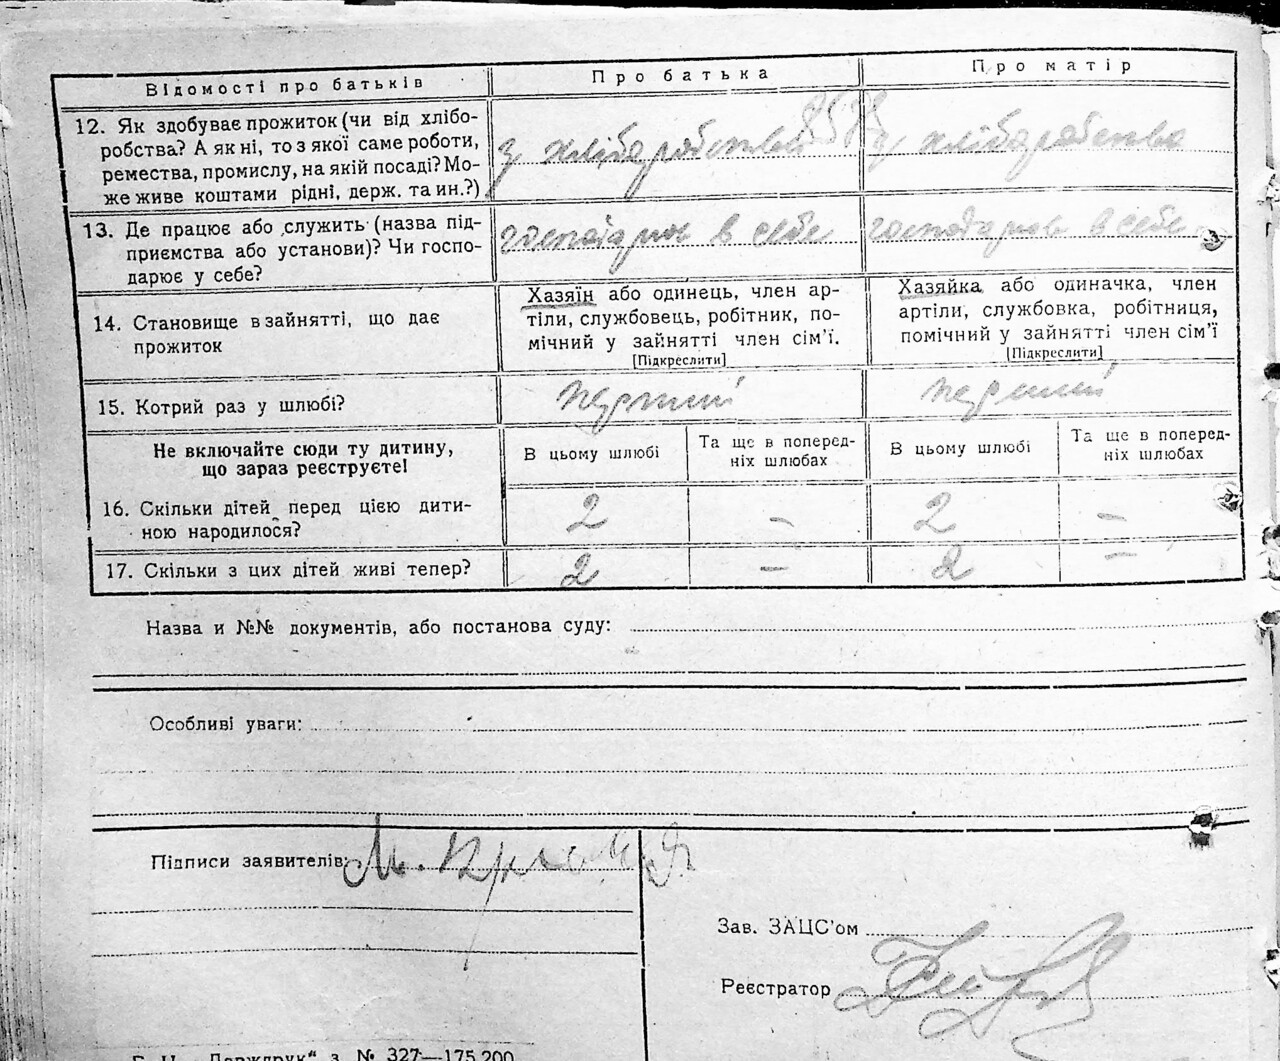 Відомості про батьків
Про батька
Про матір
12. Як здобуває прожиток (чи від хлібо-
робства? А як ні, то з якої саме роботи,
ремества, промислу, на якій посаді? Мо-
же живе коштами рідні, держ. та ин.?)
з хліборобства
з хліборобства
13. Де працює або служить (назва під-
приємства або установи)? Чи госпо-
дарює у себе?
господарює в себе
господарює в себе
14. Становище в зайнятті, що дає
прожиток
Хазяїн або одинець, член ар-
тіли, службовець, робітник, по-
мічний у зайнятті член сім'ї.
[Підкреслити]
Хазяйка або одиначка, член
артіли, службовка, робітниця,
помічний у зайнятті член сім'ї
[Підкреслити]
15. Котрий раз у шлюбі?
перший
перший
Не включайте сюди ту дитину,
що зараз реєструєте!
В цьому шлюбі
Та ще в поперед-
ніх шлюбах
В цьому шлюбі
Та ще в поперед-
ніх шлюбах
16. Скільки дітей перед цією дити-
ною народилося?
2
–
2
–
17. Скільки з цих дітей живі тепер?
2
–
2
–
Назва и №№ документів, або постанова суду:
Особливі уваги:
Підписи заявителів:
М.
Зав. ЗАЦС'ом
Реєстратор
„Держдрук“ з. № 327—175.200